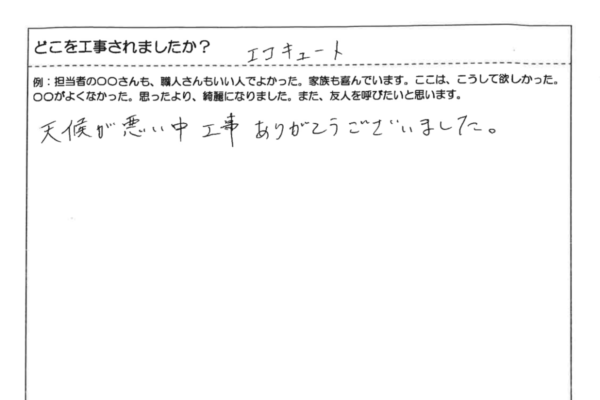 どこを工事されましたか？ エコキュート
例：担当者の〇〇さんも、職人さんもいい人でよかった。家族も喜んでいます。ここは、こうして欲しかった。
〇〇がよくなかった。思ったより、綺麗になりました。また、友人を呼びたいと思います。
天候が悪い中 工事 ありがとうございました。